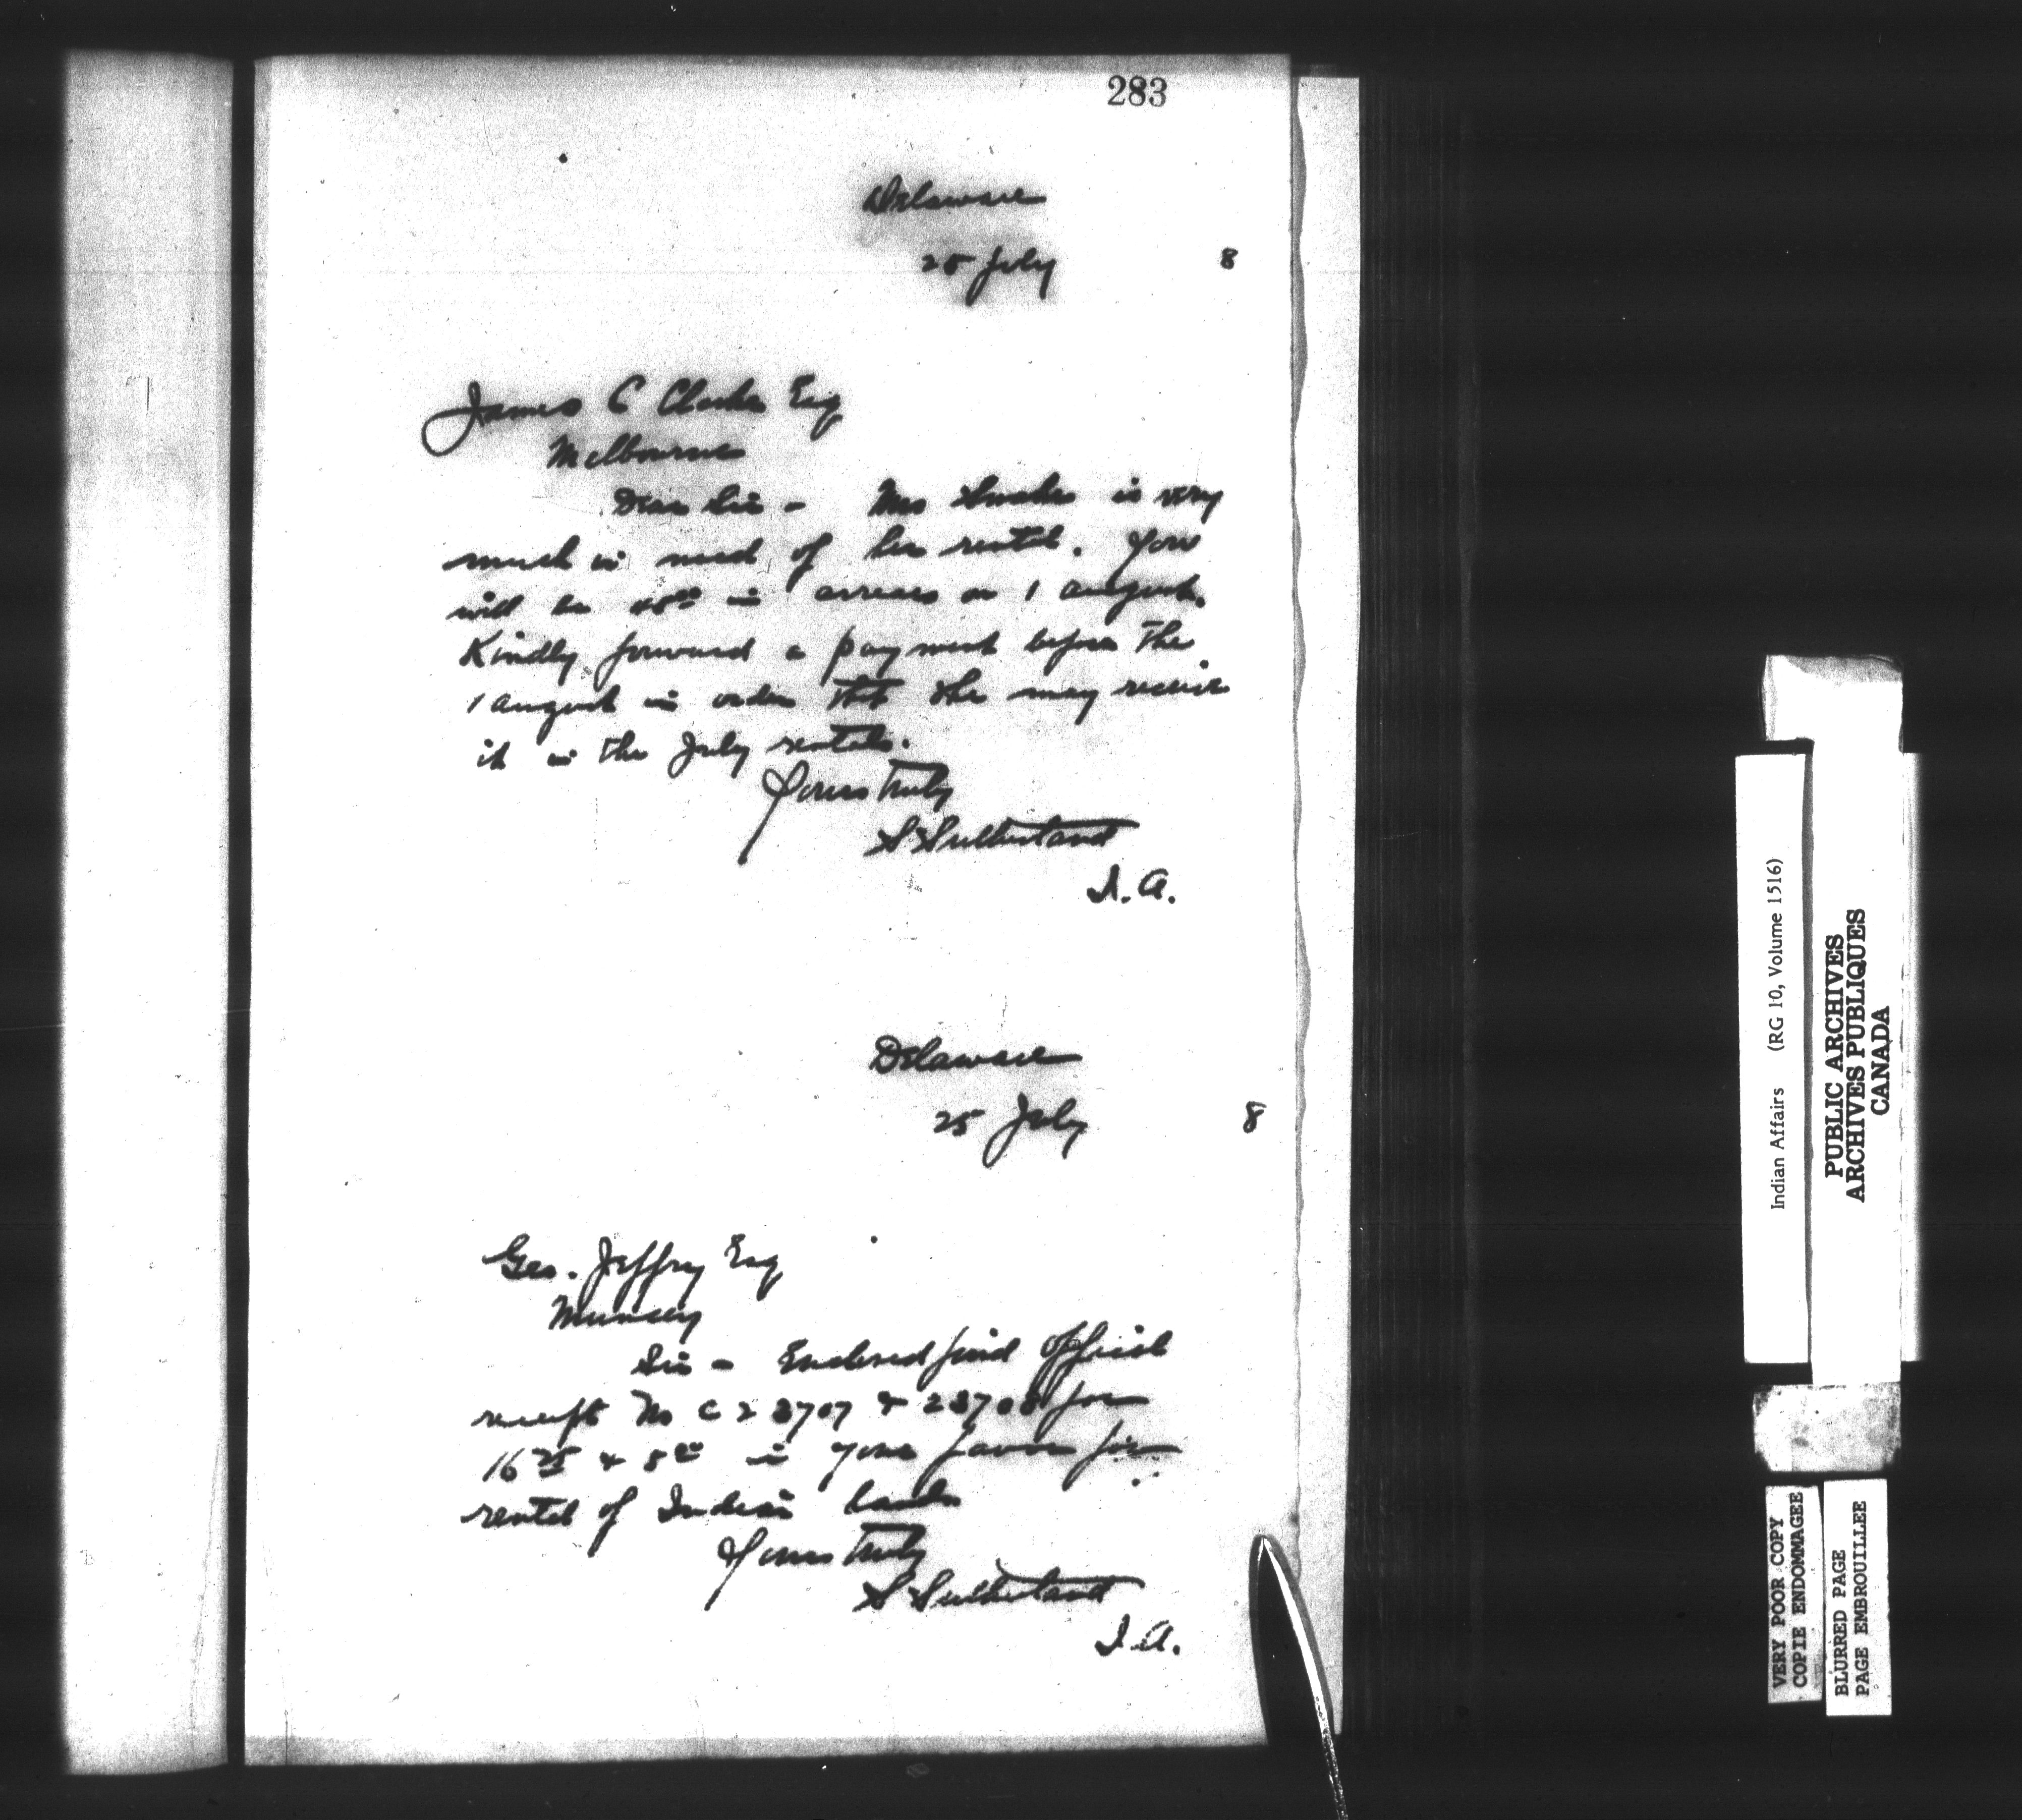 283
Delaware
25 July 8
James C Clarke Esq
Melbourne
Dear Sir - Mrs is very
much in need of her rental. You
will be in arrears on 1 August.
Kindly forward a payment before the
1 August in order that she may receive
it in the July rentals.
Yours Truly
S Sutherland
I.A.
Delaware
25 July 8
Geo. Jeffry Esq
Muncey
Sir - Enclosed find Official
receipt No C 23707 & 23708 for
16 25 & 8 00 in your favor for
rental of Indian lands
Yours Truly
S Sutherland
I.A.
Indian Affairs (RG 10, Volume 1516)
PUBLIC ARCHIVES
ARCHIVES PUBLIQUES
CANADA
VERY POOR COPY
COPIE ENDOMMAGEE
BLURRED PAGE
PAGE EMBROUILLEE